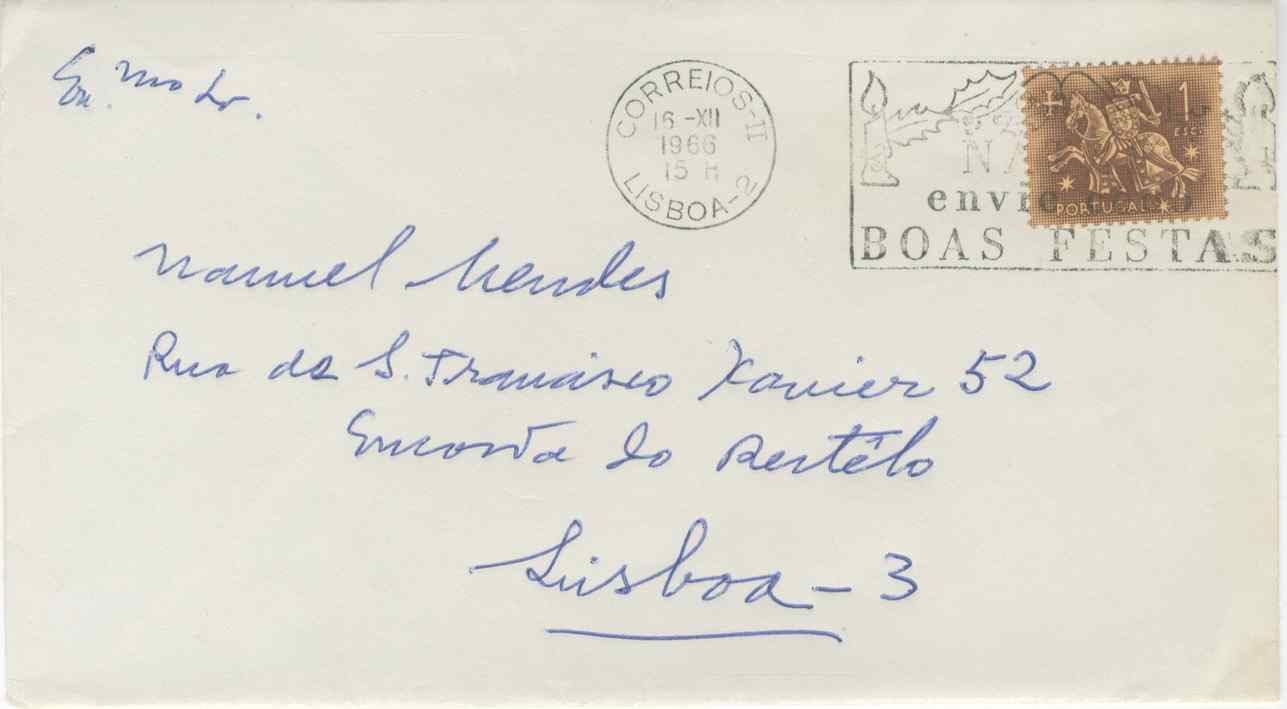 Ex.mo Sr.
CORREIOS-II
16-XII
1966
15 H
LISBOA-2
1
ESC.
PORTUGAL
envie
BOAS FESTAS
Manuel Mendes
Rua de S. Francisco Xavier 52
Encosta do Restêlo
Lisboa - 3